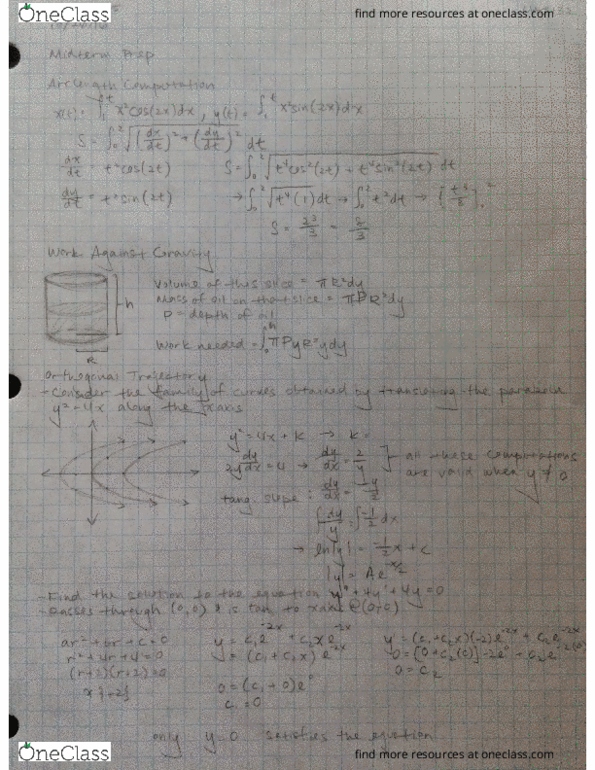 OneClass
find more resources at oneclass.com
Midterm Prep
Arc Length Computation
x(t) = ∫₁ᵗ x²cos(2x)dx , y(t) = ∫₁ᵗ x²sin(2x)dx
S = ∫₀² √((dx/dt)² + (dy/dt)²) dt
dx/dt = t²cos(2t) S = ∫₀² √(t⁴cos²(2t) + t⁴sin²(2t)) dt
dy/dt = t²sin(2t) → ∫₀² √(t⁴(1)) dt → ∫₀² t²dt →
S =
Work Against Gravity
Volume of this slice = πR²dy
Mass of oil on that slice = πPR²dy
P = depth of oil
h
Work needed = ∫₀ʰ πPgR²ydy
R
Orthogonal Trajectory
- Consider the family of curves obtained by translating the parabola
y² = 4x along the xaxis
y² = 4x + k → k =
2y dy/dx = 4 → dy/dx = 2/y all these computations
are valid when y ≠ 0
tang slope: dy/dx = -y/2
∫ dy/y = ∫ -1/2 dx
→ ln|y| = -1/2 x + c
|y| = Ae^(-x/2)
- Find the solution to the equation y'' + 4y' + 4y = 0
- Passes through (0,0) & is tan to xaxis @ (0,0)
ar² + br + c = 0 y = c₁e^(-2x) + c₂xe^(-2x) y' = (c₁+c₂x)(-2)e^(-2x) + c₂e^(-2x)
r² + 4r + 4 = 0 y = (c₁ + c₂x)e^(-2x) 0 = [0 + c₂(0)] -2e⁰ + c₂e^(-2(0))
(r+2)(r+2) = 0 0 = (c₁ + 0)e⁰ 0 = c₂
x {-2} c₁ = 0
only y = 0 satisfies the equation
OneClass
find more resources at oneclass.com